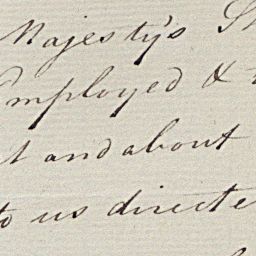 Majesty's
Employed &
and about
to us directe